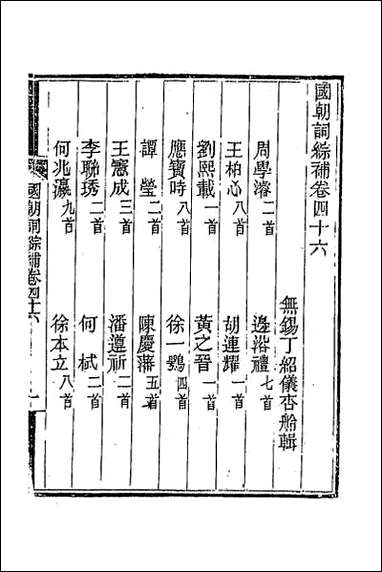 國朝詞綜補卷四十六
無錫丁紹儀杏舲輯
周學濬二首　邊浴禮七首
王柏心八首　胡連耀一首
劉熙載一首　黃之晉一首
應寶時八首　徐一鶚四首
譚瑩二首　陳慶藩五首
王憲成三首　潘遵祈二首
李聯琇二首　何栻二首
何兆瀛九首　徐本立八首
國朝詞綜補卷四十六　一